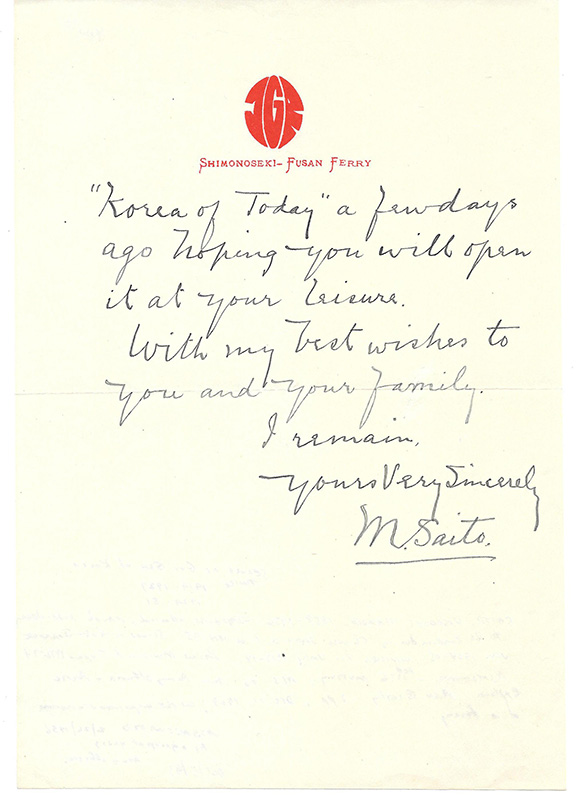 JGR
SHIMONOSEKI-FUSAN FERRY
"Korea of Today" a few days
ago hoping you will open
it at your leisure.
With my best wishes to
you and your family.
I remain,
yours Very Sincerely
M. Saito.